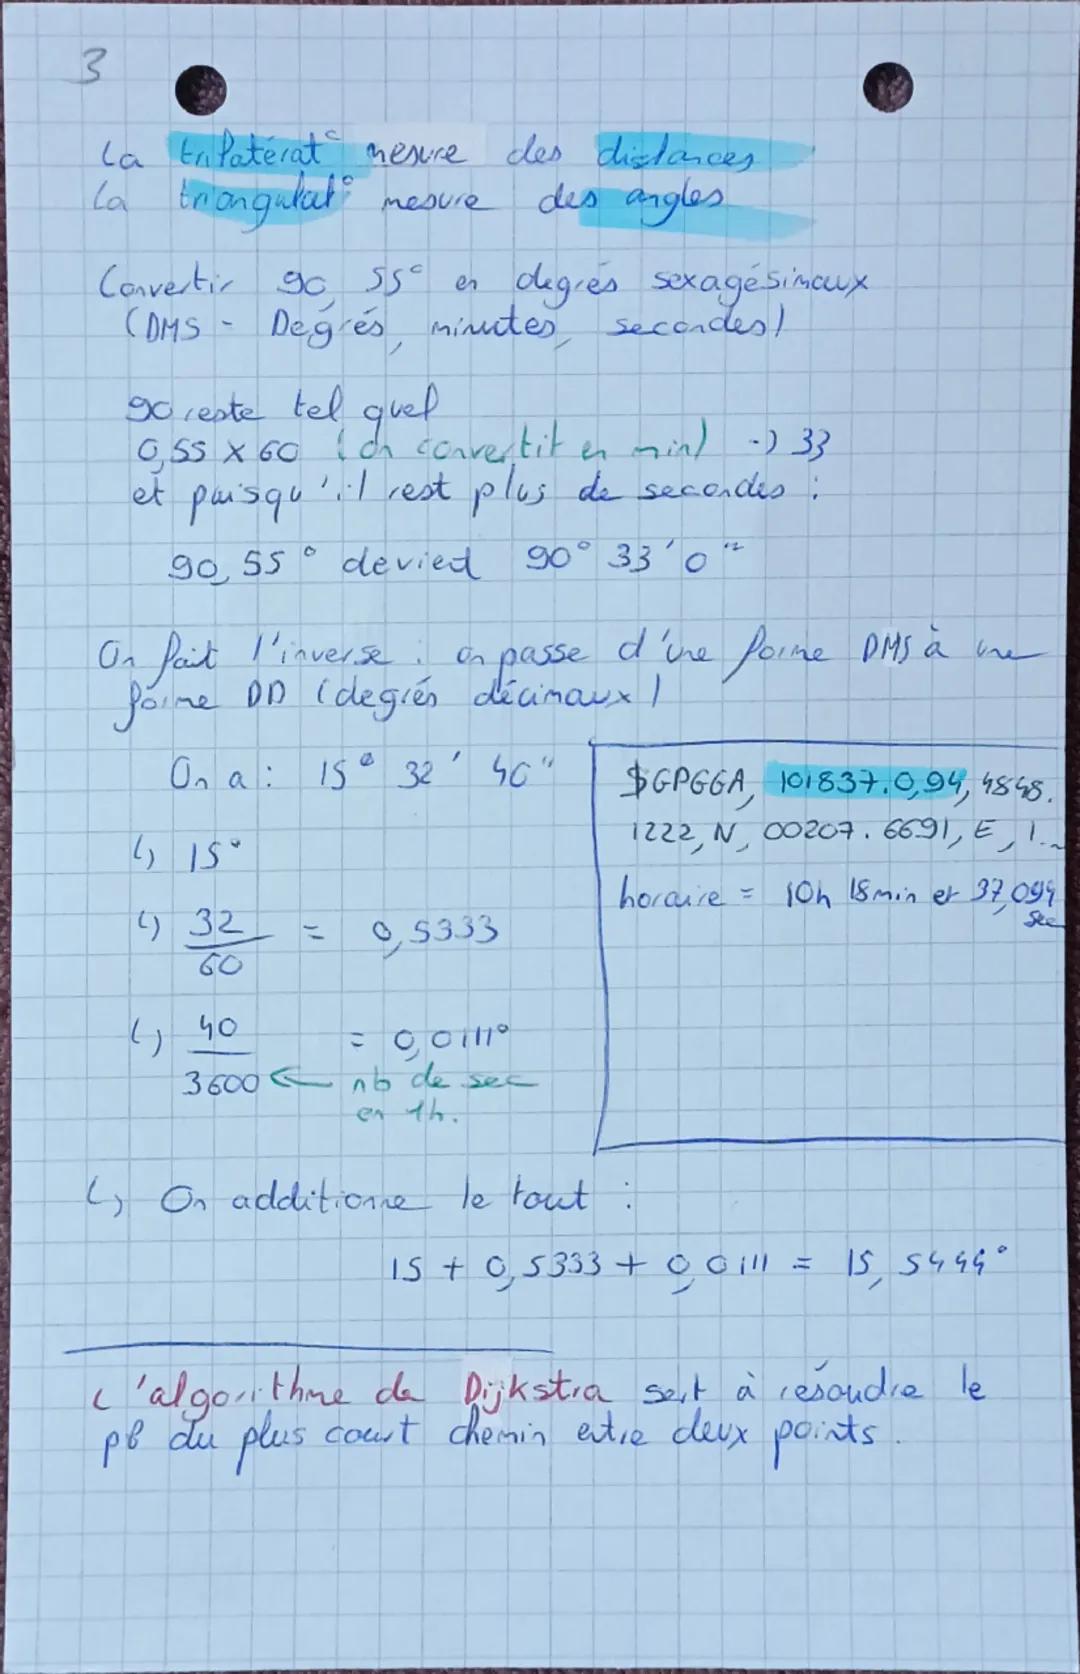 3
La trilatérat° mesure des distances
La triangulat° mesure des angles
Convertir 90,55° en degrés sexagésimaux
(DMS - Degrés, minutes, secondes)
90 reste tel quel
0,55 x 60 (on convertit en min) -> 33
et puisqu'il rest plus de secondes :
90,55° devient 90° 33' 0"
On fait l'inverse : on passe d'une forme DMS à une
forme DD (degrés décimaux)
On a : 15° 32' 40"
↳ 15°
↳ 32/60 = 0,5333
↳ 40/3600 = 0,0111°
← nb de sec
en 1h.
$GPGGA, 101837.0,94, 4848.
1222, N, 00207.6691, E, 1...
horaire = 10h 18min et 37,094
sec
↳ On additionne le tout :
15 + 0,5333 + 0,0111 = 15,5444°
L'algorithme de Dijkstra sert à résoudre le
pb du plus court chemin entre deux points.